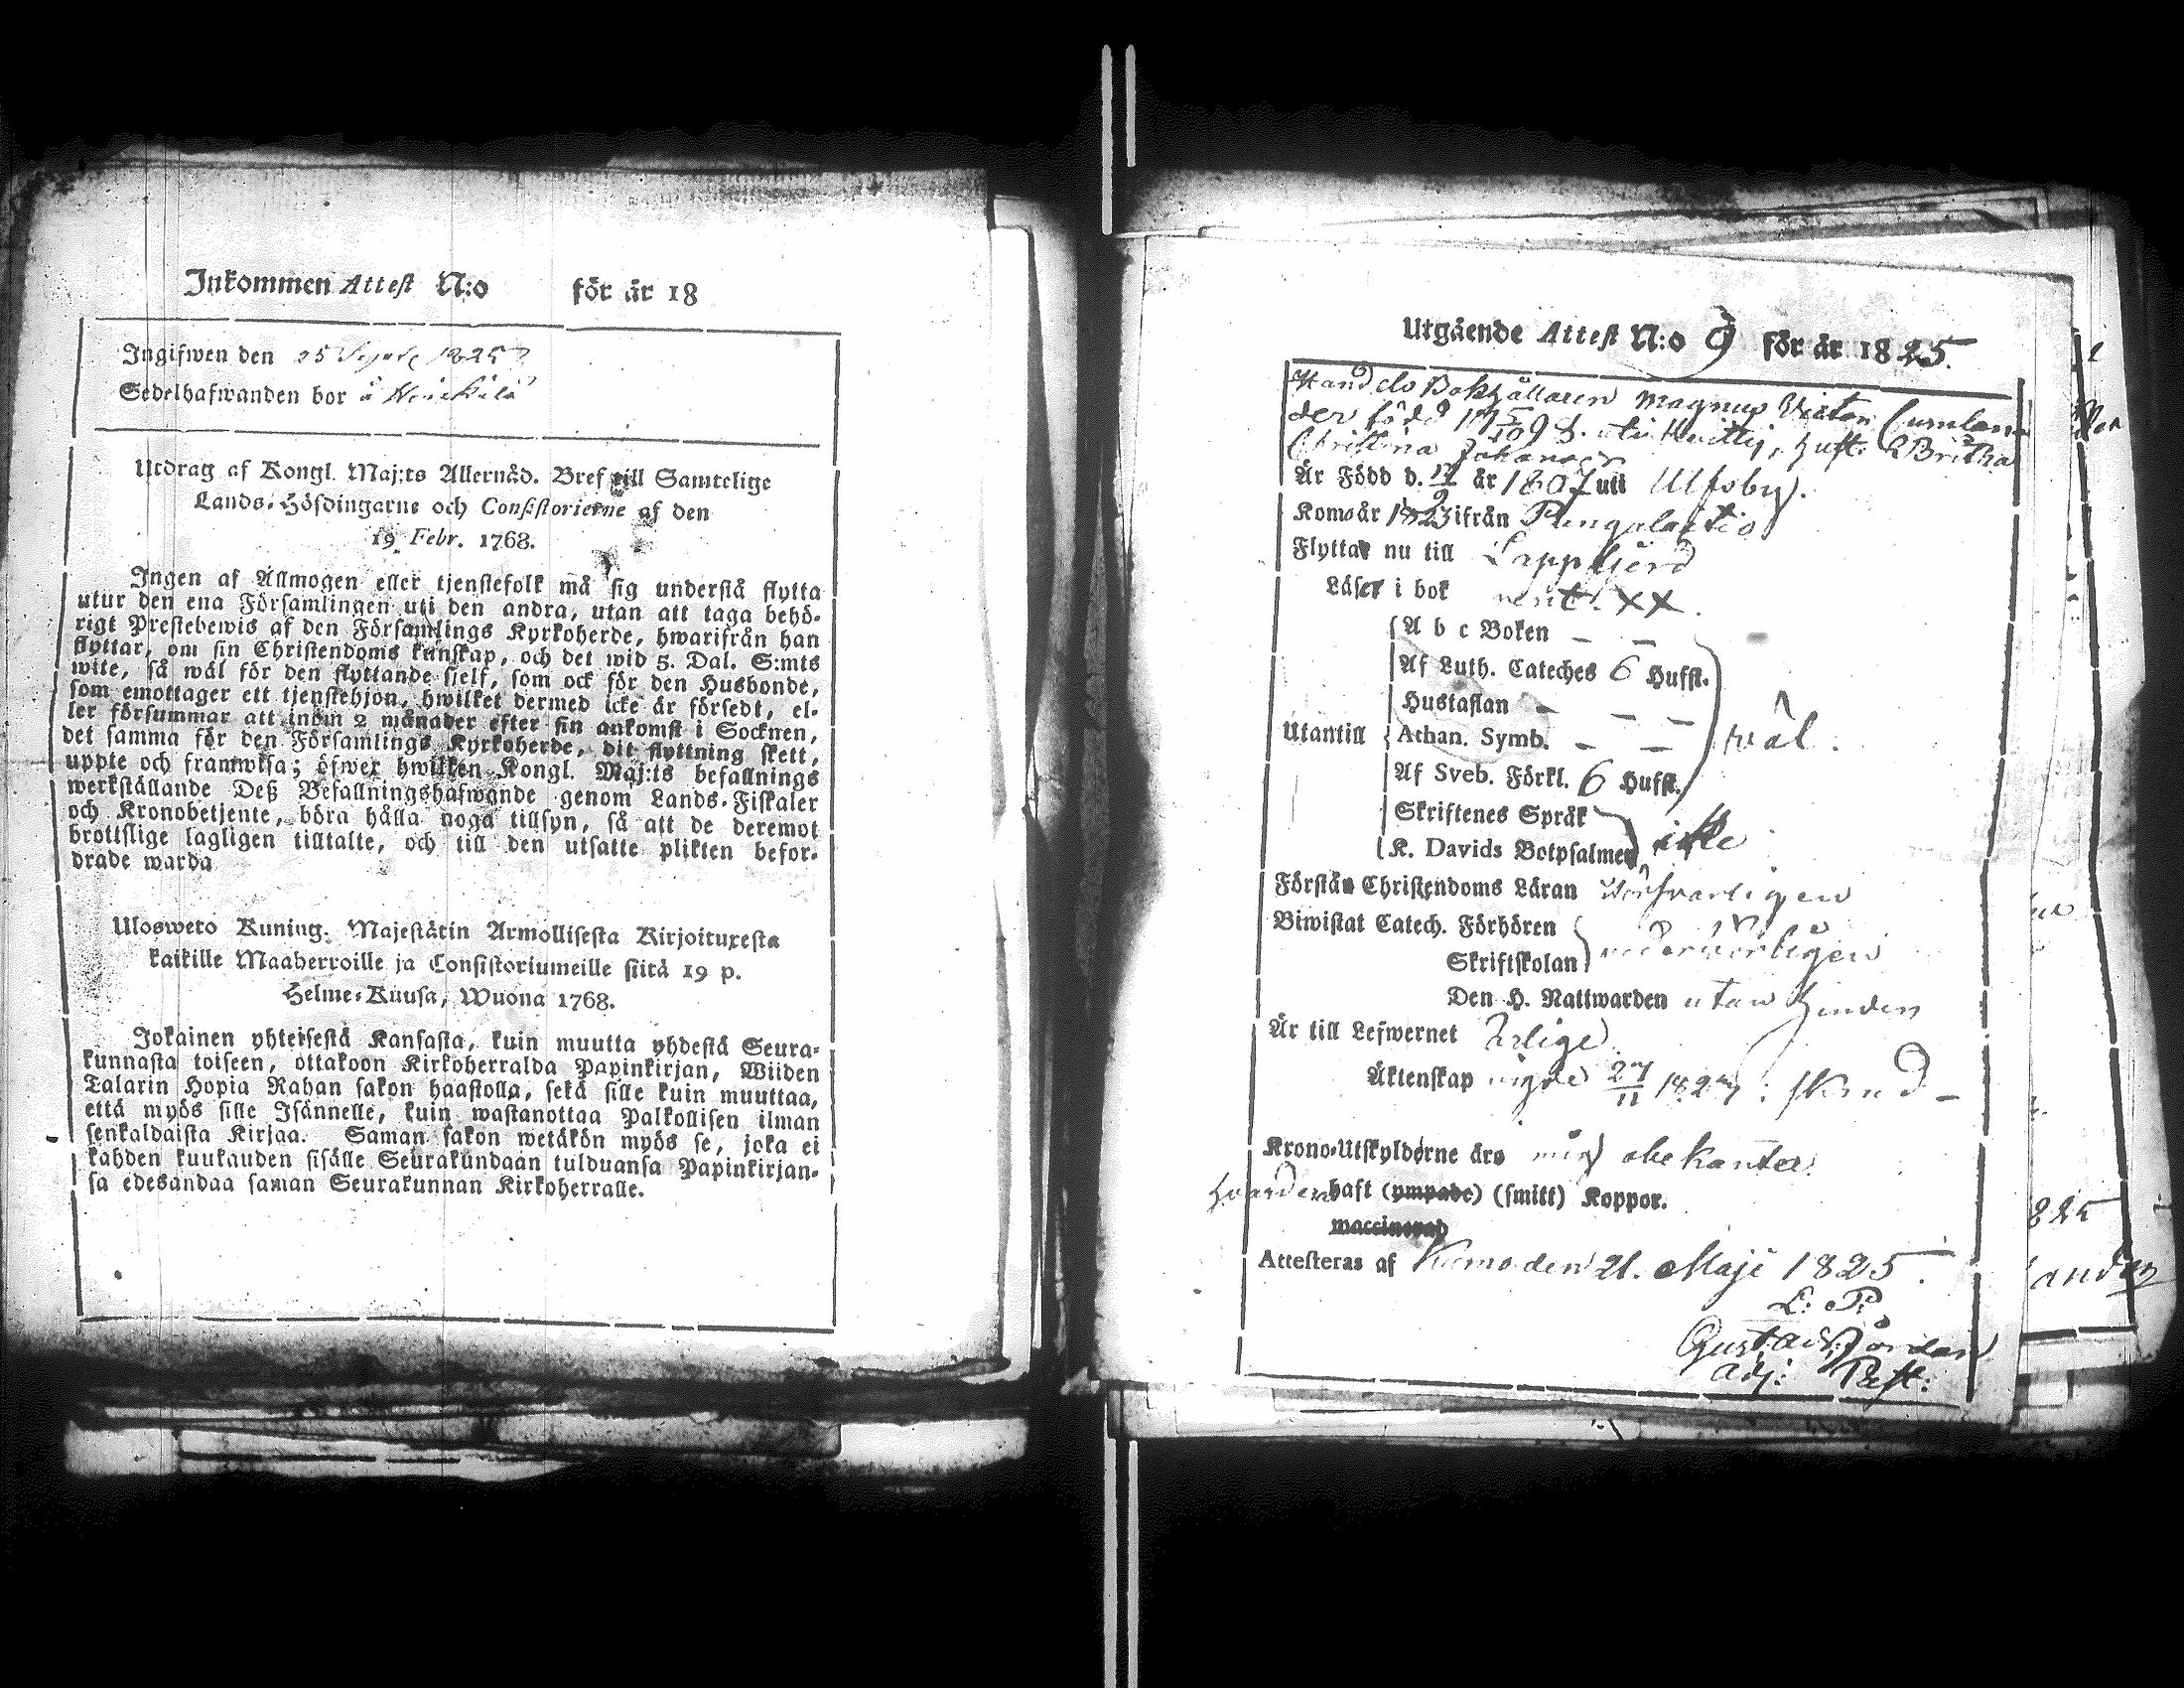 Inkommen Attest N:o för år 18
Ingifwen den 25 1825
Sedelhafwanden bor å
Utdrag af Kongl. Maj:ts Allernåd. Bref till Samtelige
Lands-Höfdingarne och Consistorierne af den
19 Febr. 1768.
Ingen af Allmogen eller tjenstefolk må sig understå flytta
utur den ena Församlingen uti den andra, utan att taga behö-
rigt Prestebewis af den Församlings Kyrkoherde, hwarifrån han
flyttar, om sin Christendoms kunskap, och det wid 5. Dal. S:mts
wite, så wäl för den flyttande sjelf, som ock för den Husbonde,
som emottager ett tjenstehjon, hwilket dermed icke är försedt, el-
ler försummar att inom 2 månader efter sin ankomst i Socknen,
det samma för den Församlings Kyrkoherde, dit flyttning skett,
uppte och framwisa; öfwer hwilken Kongl. Maj:ts befallnings
werkställande Deß Befallningshafwande genom Lands-Fiskaler
och Kronobetjente, böra hålla noga tillsyn, så att de deremot
brottslige lagligen tilltalte, och till den utsatte plikten befor-
drade warda
Ulosweto Kuning. Majestätin Armollisesta Kirjoituxesta
kaikille Maaherroille ja Consistoriumeille siitä 19 p.
Helme-Kuusa, Wuona 1768.
Jokainen yhteisestä Kansasta, kuin muutta yhdestä Seura-
kunnasta toiseen, ottakoon Kirkoherralda Papinkirjan, Wiiden
Talarin Hopia Rahan sakon haastolla, sekä sille kuin muuttaa,
että myös sille Isännelle, kuin wastanottaa Palkollisen ilman
senkaldaista Kirjaa. Saman sakon wetäkön myös se, joka ei
kahden kuukauden sisälle Seurakundaan tulduansa Papinkirjan-
sa edesandaa saman Seurakunnan Kirkoherralle.
Utgående Attest N:o 9 för år 1825.
Handels Bokhållaren Magnus Victor Cumlan-
der född 98. uti hust. Britha
Christina
Är Född d. 17 år 1807 uti Ulfsby.
Kom år 1823 ifrån
Flyttar nu till Lappfjerd
Läser i bok rent. XX.
A b c Boken – –
Af Luth. Cateches 6 Hufst.
Hustaflan – – –
Utantill Athan. Symb. – – wäl.
Af Sveb. Förkl. 6 Hufst.
Skriftenes Språk
K. Davids Botpsalmer icke
Förstår Christendoms Läran försvarligen
Biwistat Catech. Förhören
Skriftskolan
Den H. Nattwarden utan hinder
Är till Lefwernet ärlige
Äktenskap 27/11 182
Krono-Utskylderne äro mig obekanta
haft (ympade) (smitt) Koppor.
waccinerad
Attesteras af Kumo den 21. Maji 1825.
L. P.
Gustaf
Adj: Past:
825